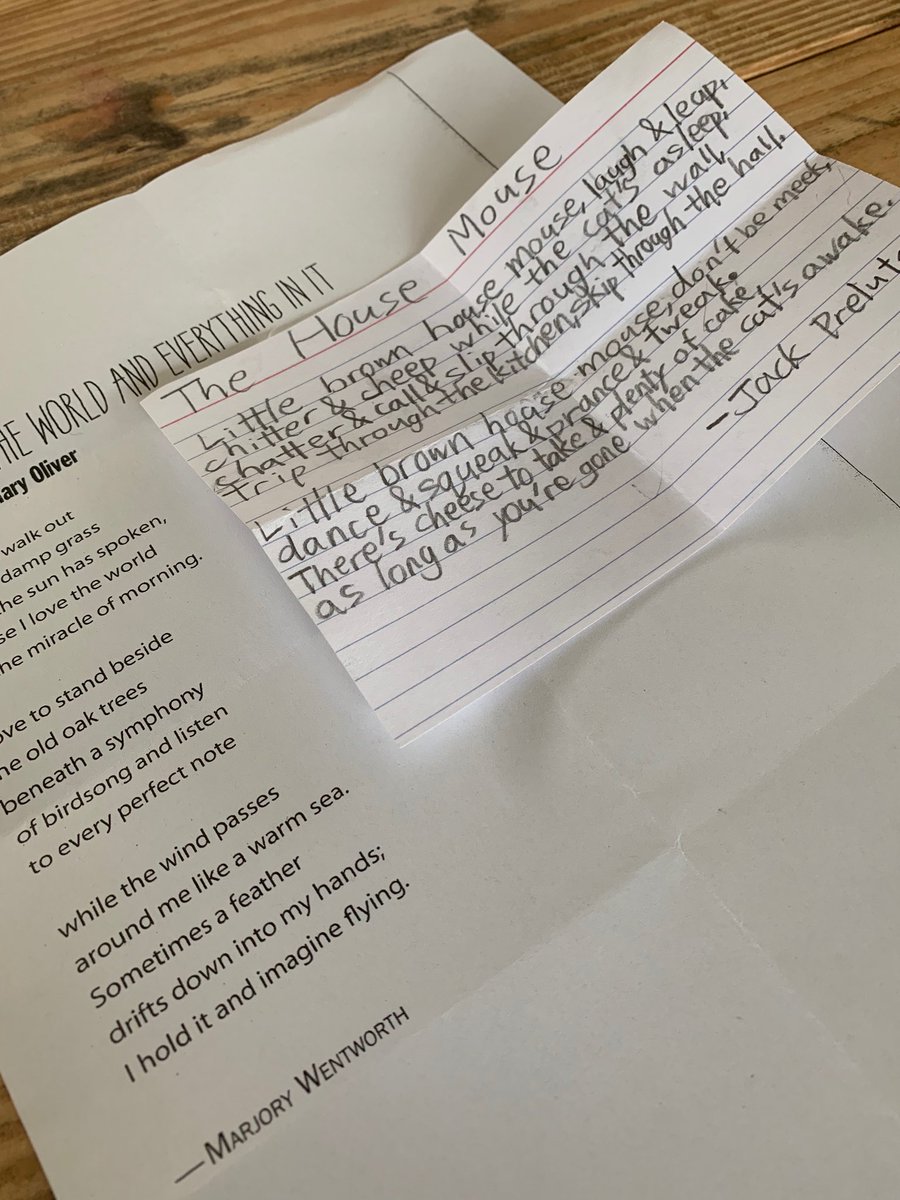 The House Mouse
Little brown house mouse, laugh & leap,
chitter & cheep while the cat's asleep,
Chatter & call & slip through the wall,
trip through the kitchen, skip through the hall.
Little brown house mouse, don't be meek,
dance & squeak & prance & tweak.
There's cheese to take & plenty of cake,
as long as you're gone when the cat's awake.
-Jack Prelut
HE WORLD AND EVERYTHING IN IT
ary Oliver
walk out
damp grass
he sun has spoken,
se I love the world
he miracle of morning.
ove to stand beside
he old oak trees
beneath a symphony
of birdsong and listen
to every perfect note
while the wind passes
around me like a warm sea.
Sometimes a feather
drifts down into my hands;
I hold it and imagine flying.
—MARJORY WENTWORTH